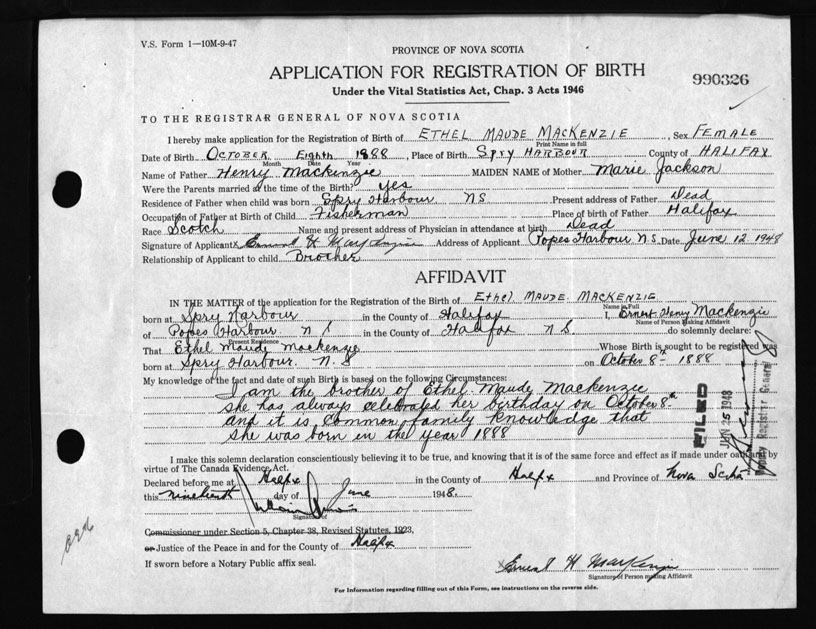 V.S. Form 1—10M-9-47
PROVINCE OF NOVA SCOTIA
APPLICATION FOR REGISTRATION OF BIRTH
990326
Under the Vital Statistics Act, Chap. 3 Acts 1946
TO THE REGISTRAR GENERAL OF NOVA SCOTIA
I hereby make application for the Registration of Birth of ETHEL MAUDE MACKENZIE, Sex FEMALE
Print Name in full
Date of Birth OCTOBER Eighth 1888, Place of Birth SPRY HARBOUR County of HALIFAX
Month Day Year
Name of Father Henry Mackenzie MAIDEN NAME of Mother Marie Jackson
Were the Parents married at the time of the Birth? yes
Residence of Father when child was born Spry Harbour NS Present address of Father Dead
Occupation of Father at Birth of Child Fisherman Place of birth of Father Halifax
Race Scotch Name and present address of Physician in attendance at birth Dead
Signature of Applicant X Ernest H MacKenzie Address of Applicant Popes Harbour N.S. Date June 12 1948
Relationship of Applicant to child Brother
AFFIDAVIT
IN THE MATTER of the application for the Registration of the Birth of Ethel MAUDE MACKENZIE
Name in Full
born at Spry Harbour in the County of Halifax I, Ernest Henry Mackenzie
Name of Person Making Affidavit
of Popes Harbour N S in the County of Halifax N S. do solemnly declare:
Present Residence
That Ethel Maude Mackenzie Whose Birth is sought to be registered was
born at Spry Harbour N.S on October 8th 1888
My knowledge of the fact and date of such Birth is based on the following Circumstances:
I am the brother of Ethel Maude Mackenzie
she has always celebrated her birthday on October 8th
and it is common family knowledge that
she was born in the year 1888
FILED
JUN 25 1948
Deputy Registrar General
I make this solemn declaration conscientiously believing it to be true, and knowing that it is of the same force and effect as if made under oath and by
virtue of The Canada Evidence Act.
Declared before me at Halfx in the County of Halfx and Province of Nova Scotia
this day of June 1948.
Signature of
Commissioner under Section 5, Chapter 38, Revised Statutes, 1923,
or Justice of the Peace in and for the County of Halfx
If sworn before a Notary Public affix seal.
X Ernest H MacKenzie
Signature of Person making Affidavit
For Information regarding filling out of this Form, see instructions on the reverse side.